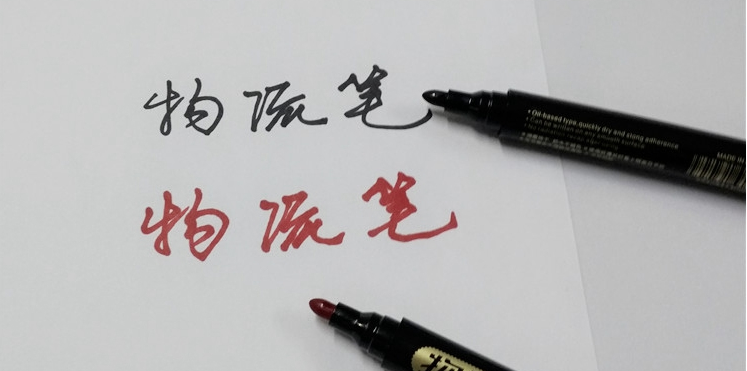 物流笔
• Oil-based type, quickly dry and strong adherence
• Can be written on any smooth surface
MADE IN
物流笔